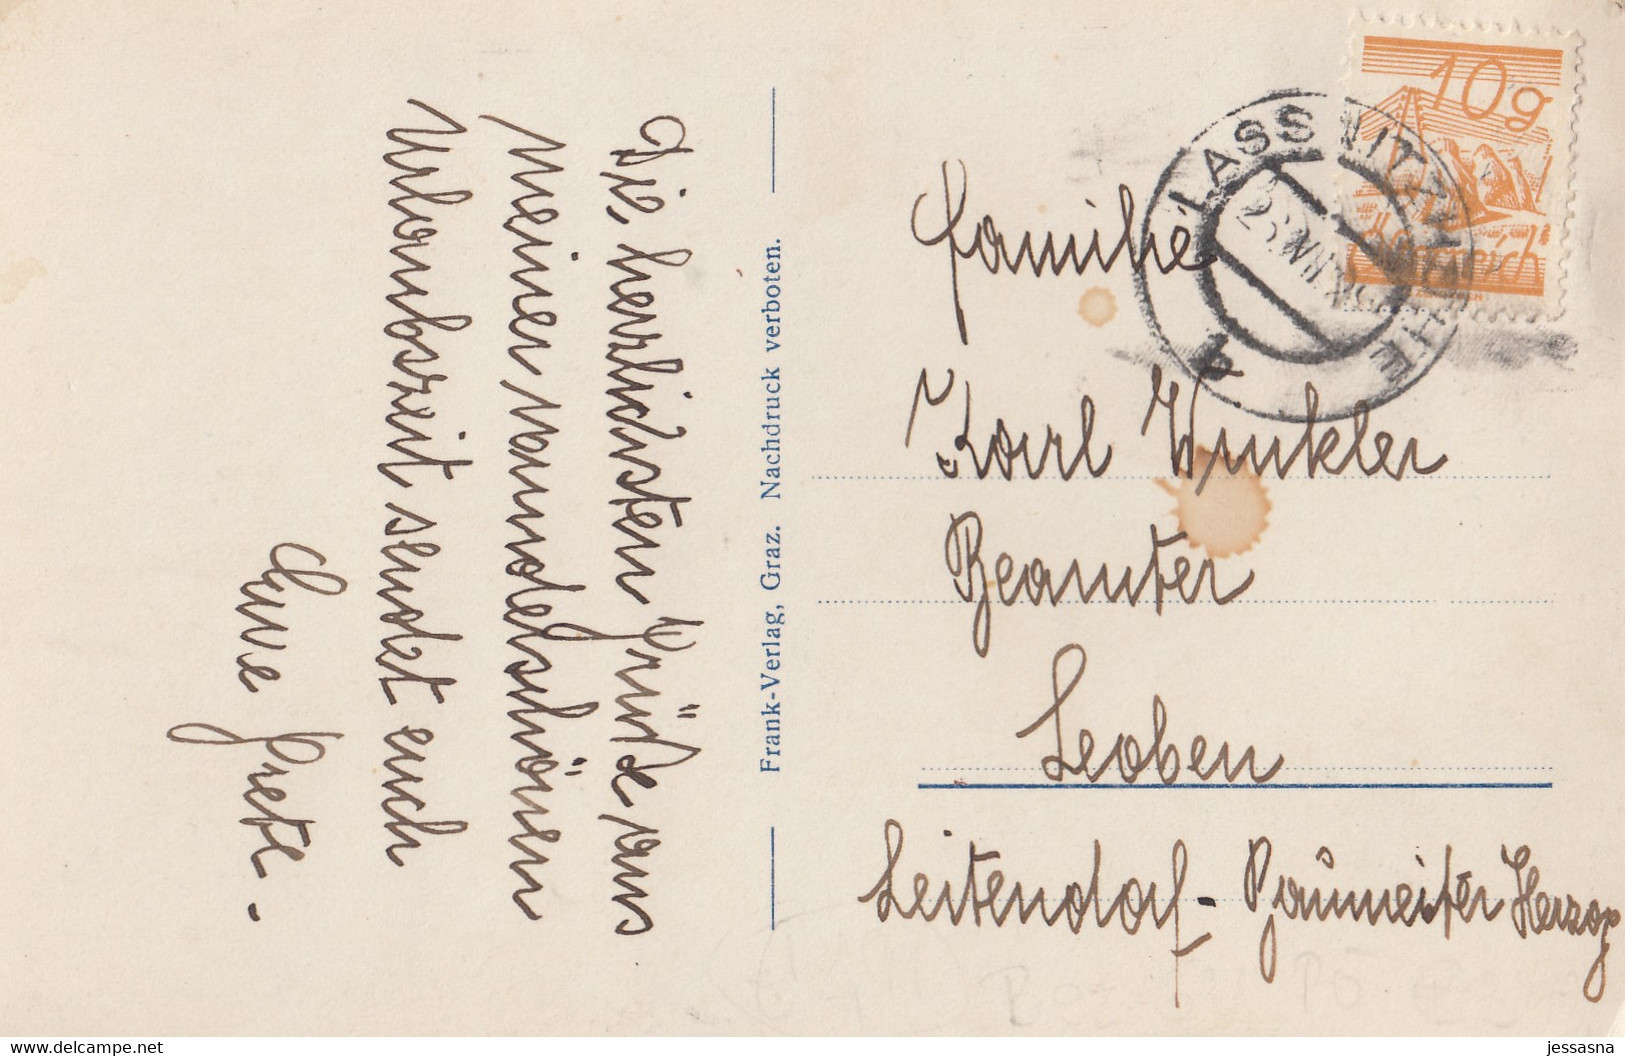 Die herzlichsten Grüße aus
meiner wunderschönen
Urlaubszeit sendet euch
Eure Grete.
Frank-Verlag, Graz. Nachdruck verboten.
10g
Österreich
LASSNITZHÖHE
Familie
Karl Winkler
Beamter
Leoben
Leitendorf - Baumeister Herzog
jessasna